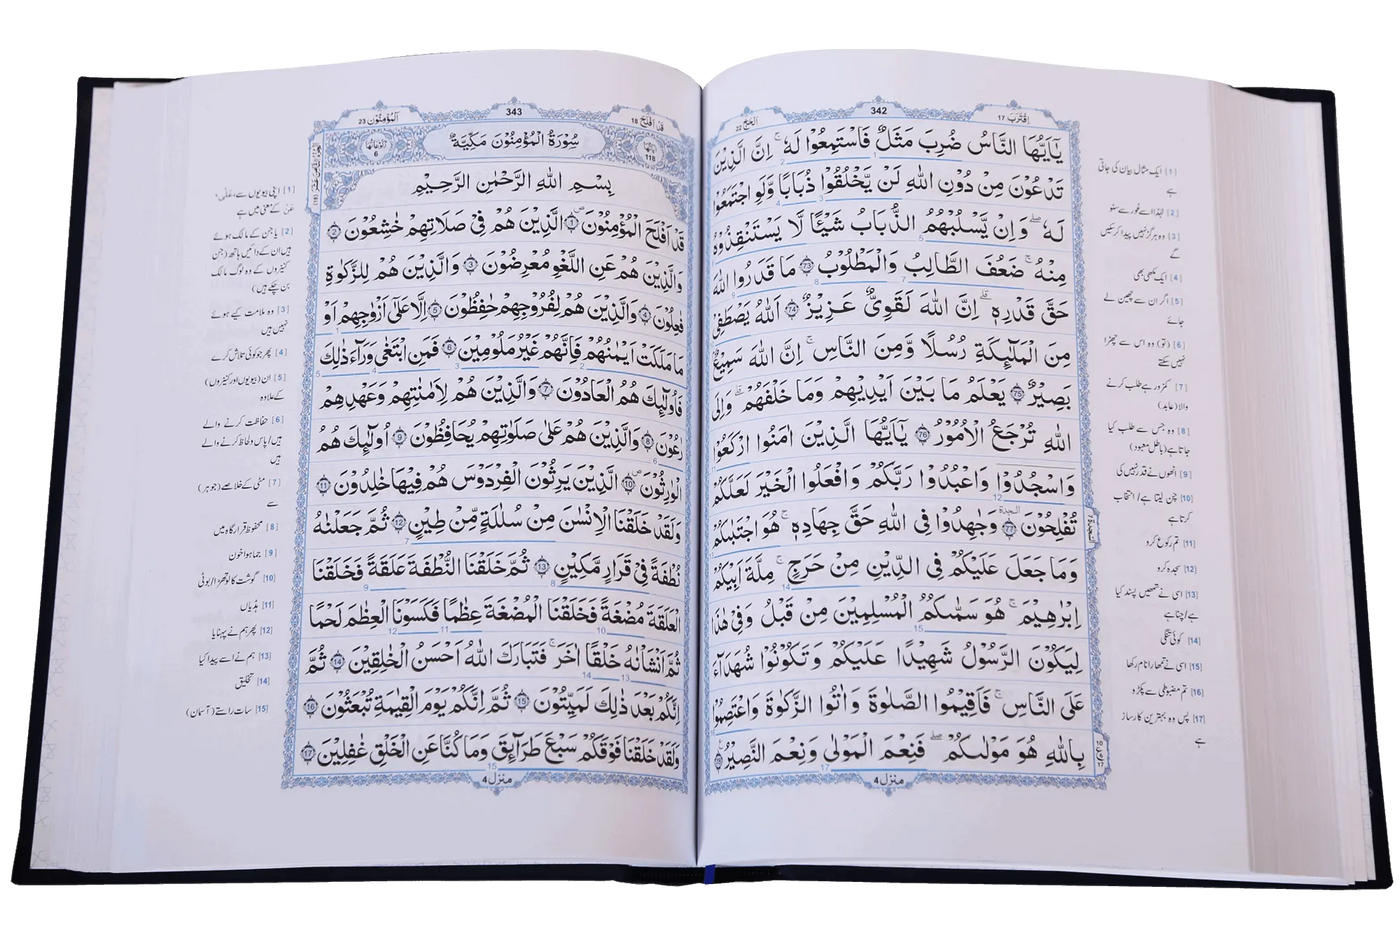 اِقْتَرَبَ 17
342
اَلْحَجّ 22
يٰۤاَيُّهَا النَّاسُ ضُرِبَ مَثَلٌ فَاسْتَمِعُوْا لَهٗ ؕ اِنَّ الَّذِيْنَ
تَدْعُوْنَ مِنْ دُوْنِ اللّٰهِ لَنْ يَّخْلُقُوْا ذُبَابًا وَّلَوِ اجْتَمَعُوْا
لَهٗ ؕ وَاِنْ يَّسْلُبْهُمُ الذُّبَابُ شَيْـًٔا لَّا يَسْتَنْقِذُوْهُ
مِنْهُ ؕ ضَعُفَ الطَّالِبُ وَالْمَطْلُوْبُ 73 مَا قَدَرُوا اللّٰهَ
حَقَّ قَدْرِهٖ ؕ اِنَّ اللّٰهَ لَقَوِيٌّ عَزِيْزٌ 74 اَللّٰهُ يَصْطَفِيْ
مِنَ الْمَلٰٓئِكَةِ رُسُلًا وَّمِنَ النَّاسِ ؕ اِنَّ اللّٰهَ سَمِيْعٌۢ
بَصِيْرٌ 75 يَعْلَمُ مَا بَيْنَ اَيْدِيْهِمْ وَمَا خَلْفَهُمْ ؕ وَاِلَى
اللّٰهِ تُرْجَعُ الْاُمُوْرُ 76 يٰۤاَيُّهَا الَّذِيْنَ اٰمَنُوا ارْكَعُوْا
وَاسْجُدُوْا وَاعْبُدُوْا رَبَّكُمْ وَافْعَلُوا الْخَيْرَ لَعَلَّكُمْ
تُفْلِحُوْنَ 77 وَجٰهِدُوْا فِي اللّٰهِ حَقَّ جِهَادِهٖ ؕ هُوَ اجْتَبٰىكُمْ
وَمَا جَعَلَ عَلَيْكُمْ فِي الدِّيْنِ مِنْ حَرَجٍ ؕ مِلَّةَ اَبِيْكُمْ
اِبْرٰهِيْمَ ؕ هُوَ سَمّٰىكُمُ الْمُسْلِمِيْنَ مِنْ قَبْلُ وَفِيْ هٰذَا
لِيَكُوْنَ الرَّسُوْلُ شَهِيْدًا عَلَيْكُمْ وَتَكُوْنُوْا شُهَدَآءَ
عَلَى النَّاسِ ؕ فَاَقِيْمُوا الصَّلٰوةَ وَاٰتُوا الزَّكٰوةَ وَاعْتَصِمُوْا
بِاللّٰهِ هُوَ مَوْلٰىكُمْ ؕ فَنِعْمَ الْمَوْلٰى وَنِعْمَ النَّصِيْرُ
منزل 4
[1] ایک مثال بیان کی جاتی
ہے
[2] لہٰذا اسے غور سے سنو
[3] وہ ہرگز نہیں پیدا کرسکیں
گے
[4] ایک مکھی بھی
[5] اگر ان سے چھین لے
جائے
[6] (تو) وہ اس سے چھڑا
نہیں سکتے
[7] کمزور ہے طلب کرنے
والا (عابد)
[8] وہ جس سے طلب کیا
جاتا ہے (باطل معبود)
[9] انھوں نے قدر نہیں کی
[10] چن لیتا ہے/انتخاب
کرتا ہے
[11] تم رکوع کرو
[12] سجدہ کرو
[13] اسی نے تمھیں پسند کیا
ہے/چنا ہے
[14] کوئی تنگی
[15] اسی نے تمھارا نام رکھا
[16] تم مضبوطی سے پکڑو
[17] پس وہ بہترین کارساز
ہے
قَدْ اَفْلَحَ 18
343
اَلْمُؤْمِنُوْن 23
118
سُوْرَةُ الْمُؤْمِنُوْنَ مَكِّيَّةٌ
6
بِسْمِ اللّٰهِ الرَّحْمٰنِ الرَّحِيْمِ
قَدْ اَفْلَحَ الْمُؤْمِنُوْنَ 1 الَّذِيْنَ هُمْ فِيْ صَلَاتِهِمْ خٰشِعُوْنَ 2
وَالَّذِيْنَ هُمْ عَنِ اللَّغْوِ مُعْرِضُوْنَ 3 وَالَّذِيْنَ هُمْ لِلزَّكٰوةِ
فٰعِلُوْنَ 4 وَالَّذِيْنَ هُمْ لِفُرُوْجِهِمْ حٰفِظُوْنَ 5 اِلَّا عَلٰۤى اَزْوَاجِهِمْ اَوْ
مَا مَلَكَتْ اَيْمَانُهُمْ فَاِنَّهُمْ غَيْرُ مَلُوْمِيْنَ 6 فَمَنِ ابْتَغٰى وَرَآءَ ذٰلِكَ
فَاُولٰٓئِكَ هُمُ الْعٰدُوْنَ 7 وَالَّذِيْنَ هُمْ لِاَمٰنٰتِهِمْ وَعَهْدِهِمْ
رٰعُوْنَ 8 وَالَّذِيْنَ هُمْ عَلٰى صَلَوٰتِهِمْ يُحَافِظُوْنَ 9 اُولٰٓئِكَ هُمُ
الْوٰرِثُوْنَ 10 الَّذِيْنَ يَرِثُوْنَ الْفِرْدَوْسَ هُمْ فِيْهَا خٰلِدُوْنَ 11
وَلَقَدْ خَلَقْنَا الْاِنْسٰنَ مِنْ سُلٰلَةٍ مِّنْ طِيْنٍ 12 ثُمَّ جَعَلْنٰهُ
نُطْفَةً فِيْ قَرَارٍ مَّكِيْنٍ 13 ثُمَّ خَلَقْنَا النُّطْفَةَ عَلَقَةً فَخَلَقْنَا
الْعَلَقَةَ مُضْغَةً فَخَلَقْنَا الْمُضْغَةَ عِظٰمًا فَكَسَوْنَا الْعِظٰمَ لَحْمًا
ثُمَّ اَنْشَاْنٰهُ خَلْقًا اٰخَرَ ؕ فَتَبَارَكَ اللّٰهُ اَحْسَنُ الْخٰلِقِيْنَ 14 ثُمَّ
اِنَّكُمْ بَعْدَ ذٰلِكَ لَمَيِّتُوْنَ 15 ثُمَّ اِنَّكُمْ يَوْمَ الْقِيٰمَةِ تُبْعَثُوْنَ 16
وَلَقَدْ خَلَقْنَا فَوْقَكُمْ سَبْعَ طَرَآئِقَ وَمَا كُنَّا عَنِ الْخَلْقِ غٰفِلِيْنَ 17
منزل 4
[1] اپنی بیویوں سے، عَلٰی،
عَنْ کے معنی میں ہے
[2] یا جن کے مالک ہوئے
ہیں ان کے دائیں ہاتھ (جن
کنیزوں کے وہ لوگ مالک
بن چکے ہیں)
[3] وہ ملامت کیے ہوئے
نہیں ہیں
[4] پھر جو کوئی تلاش کرے
[5] ان (بیویوں اور کنیزوں)
کے علاوہ
[6] حفاظت کرنے والے
ہیں/پاس و لحاظ کرنے والے
ہیں
[7] مٹی کے خلاصے (جوہر)
سے
[8] محفوظ قرار گاہ میں
[9] جما ہوا خون
[10] گوشت کا لوتھڑا/بوٹی
[11] ہڈیاں
[12] پھر ہم نے پہنایا
[13] ہم نے اسے پیدا کیا
[14] تخلیق
[15] سات راستے (آسمان)